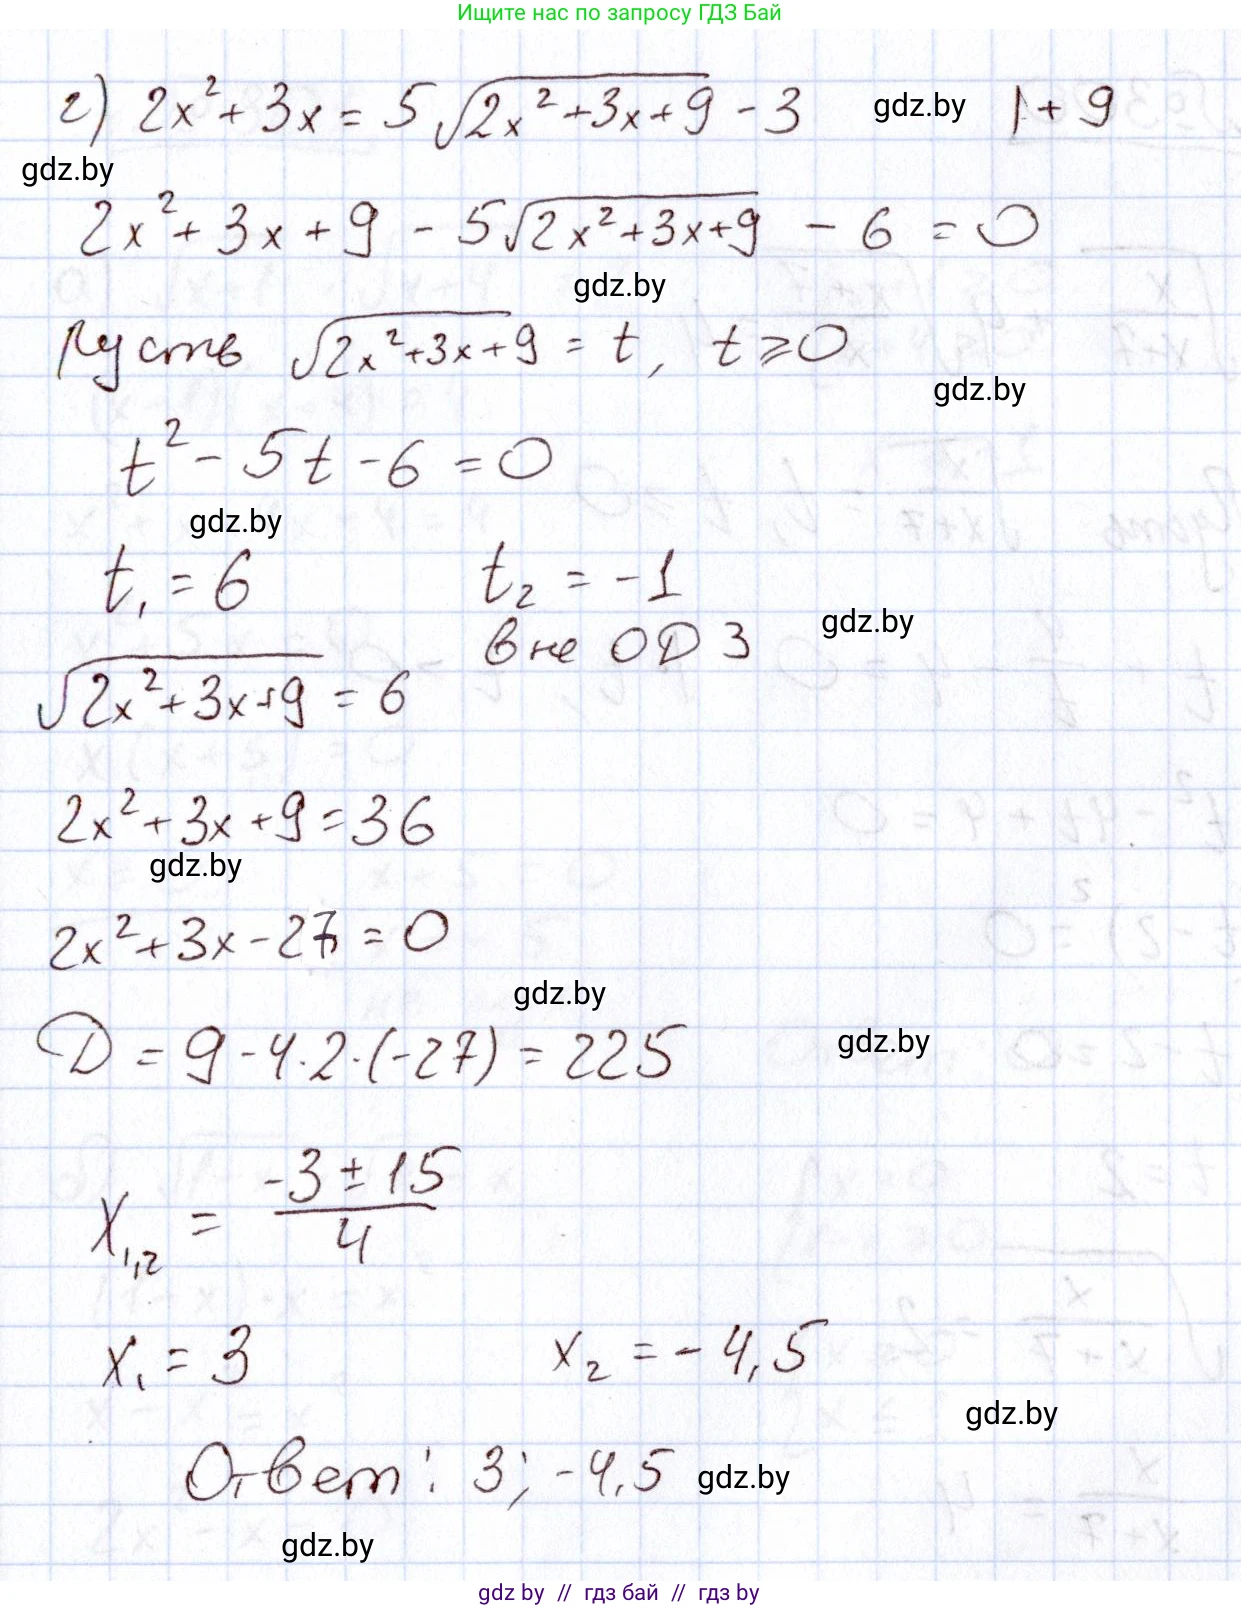 Ищите нас по запросу ГДЗ Бай
г) 2x² + 3x = 5√(2x² + 3x + 9) - 3 gdz.by | + 9
gdz.by
2x² + 3x + 9 - 5√(2x² + 3x + 9) - 6 = 0
gdz.by
Пусть √(2x² + 3x + 9) = t, t ≥ 0
gdz.by
t² - 5t - 6 = 0
gdz.by
t₁ = 6 t₂ = -1
вне ОДЗ gdz.by
√(2x² + 3x + 9) = 6
2x² + 3x + 9 = 36
gdz.by
2x² + 3x - 27 = 0
gdz.by
D = 9 - 4·2·(-27) = 225 gdz.by
x₁,₂ = (-3 ± 15)/4
x₁ = 3 x₂ = -4,5
gdz.by
Ответ: 3; -4,5 gdz.by
gdz.by
gdz by // гдз бай // гдз by